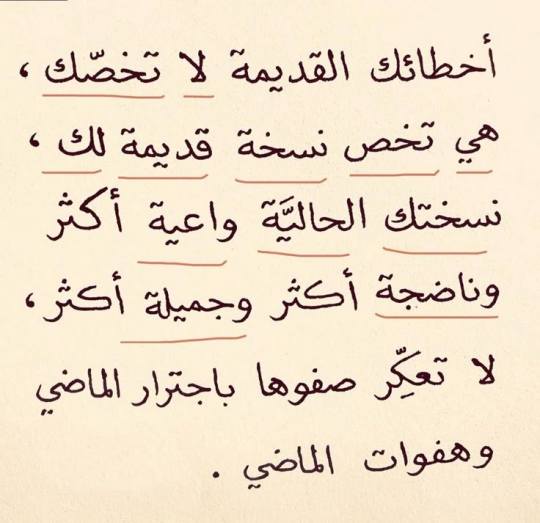 أخطائك القديمة لا تخصّك ،
هي تخص نسخة قديمة لك ،
نسختك الحاليَّة واعية أكثر
وناضجة أكثر وجميلة أكثر ،
لا تعكِّر صفوها باجترار الماضي
وهفوات الماضي .